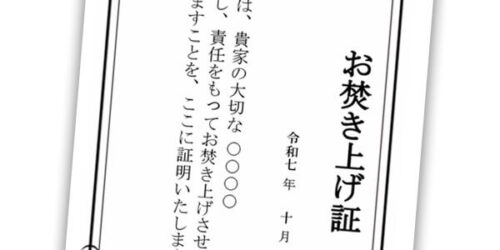 お焚き上げ証
令和七年 十月
は、貴家の大切な 〇〇〇〇
し、責任をもってお焚き上げさせ
ますことを、ここに証明いたしま